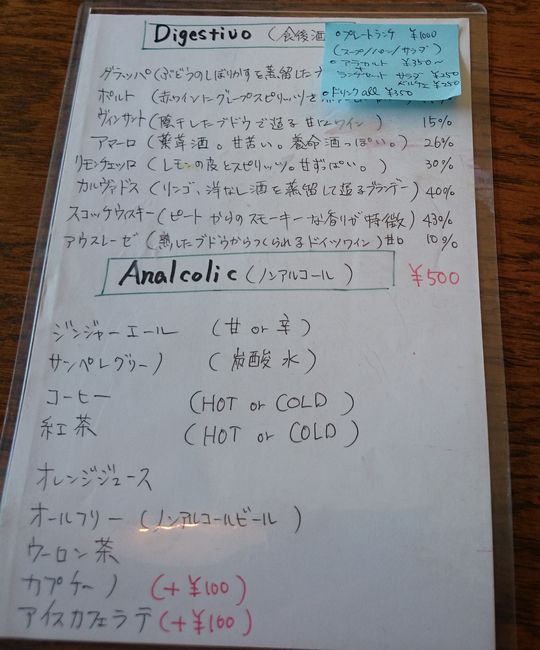 Digestivo (食後酒
・プレートランチ ¥1000
(スープ/パン/サラダ)
・アラカルト ¥350〜
ランチセット サラダ ¥250
・ドリンク all ¥350
グラッパ (ぶどうのしぼりかすを蒸留した
ポルト (赤ワインにグレープスピリッツを
ヴィンサント (陰干ししたブドウで造る甘口ワイン) 15%
アマーロ (薬草酒。甘苦い。養命酒っぽい。) 26%
リモンチェッロ (レモンの皮とスピリッツ。甘ずっぱい。) 30%
カルヴァドス (リンゴ、洋なし酒を蒸留して造るブランデー) 40%
スコッチウィスキー (ピートからのスモーキーな香りが特徴) 43%
アウスレーゼ (熟したブドウからつくられるドイツワイン) 甘口 10%
Analcolic (ノンアルコール) ¥500
ジンジャーエール (甘 or 辛)
サンペレグリーノ (炭酸水)
コーヒー (HOT or COLD)
紅茶 (HOT or COLD)
オレンジジュース
オールフリー (ノンアルコールビール)
ウーロン茶
カプチーノ (+¥100)
アイスカフェラテ (+¥100)